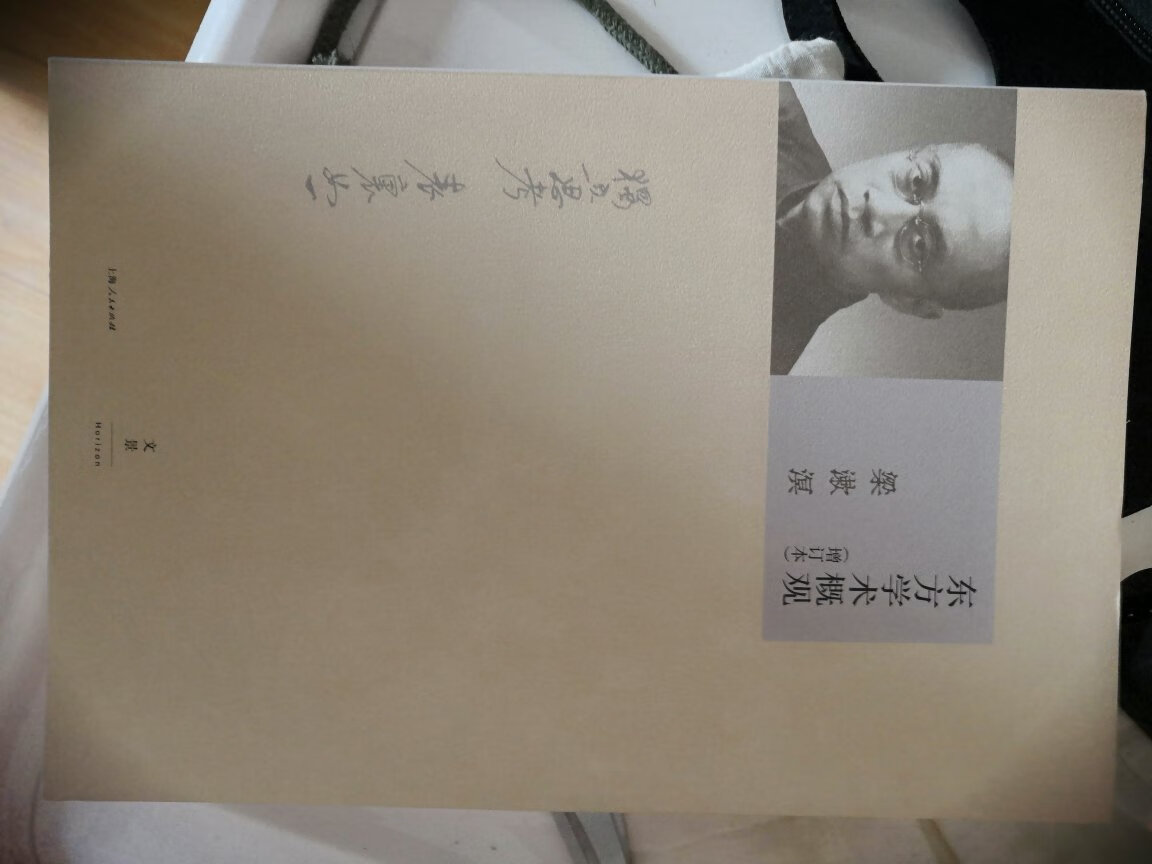 东方学术概观
(增订本)
梁漱溟
独立思考 表里如一
上海人民出版社
文景
Horizon